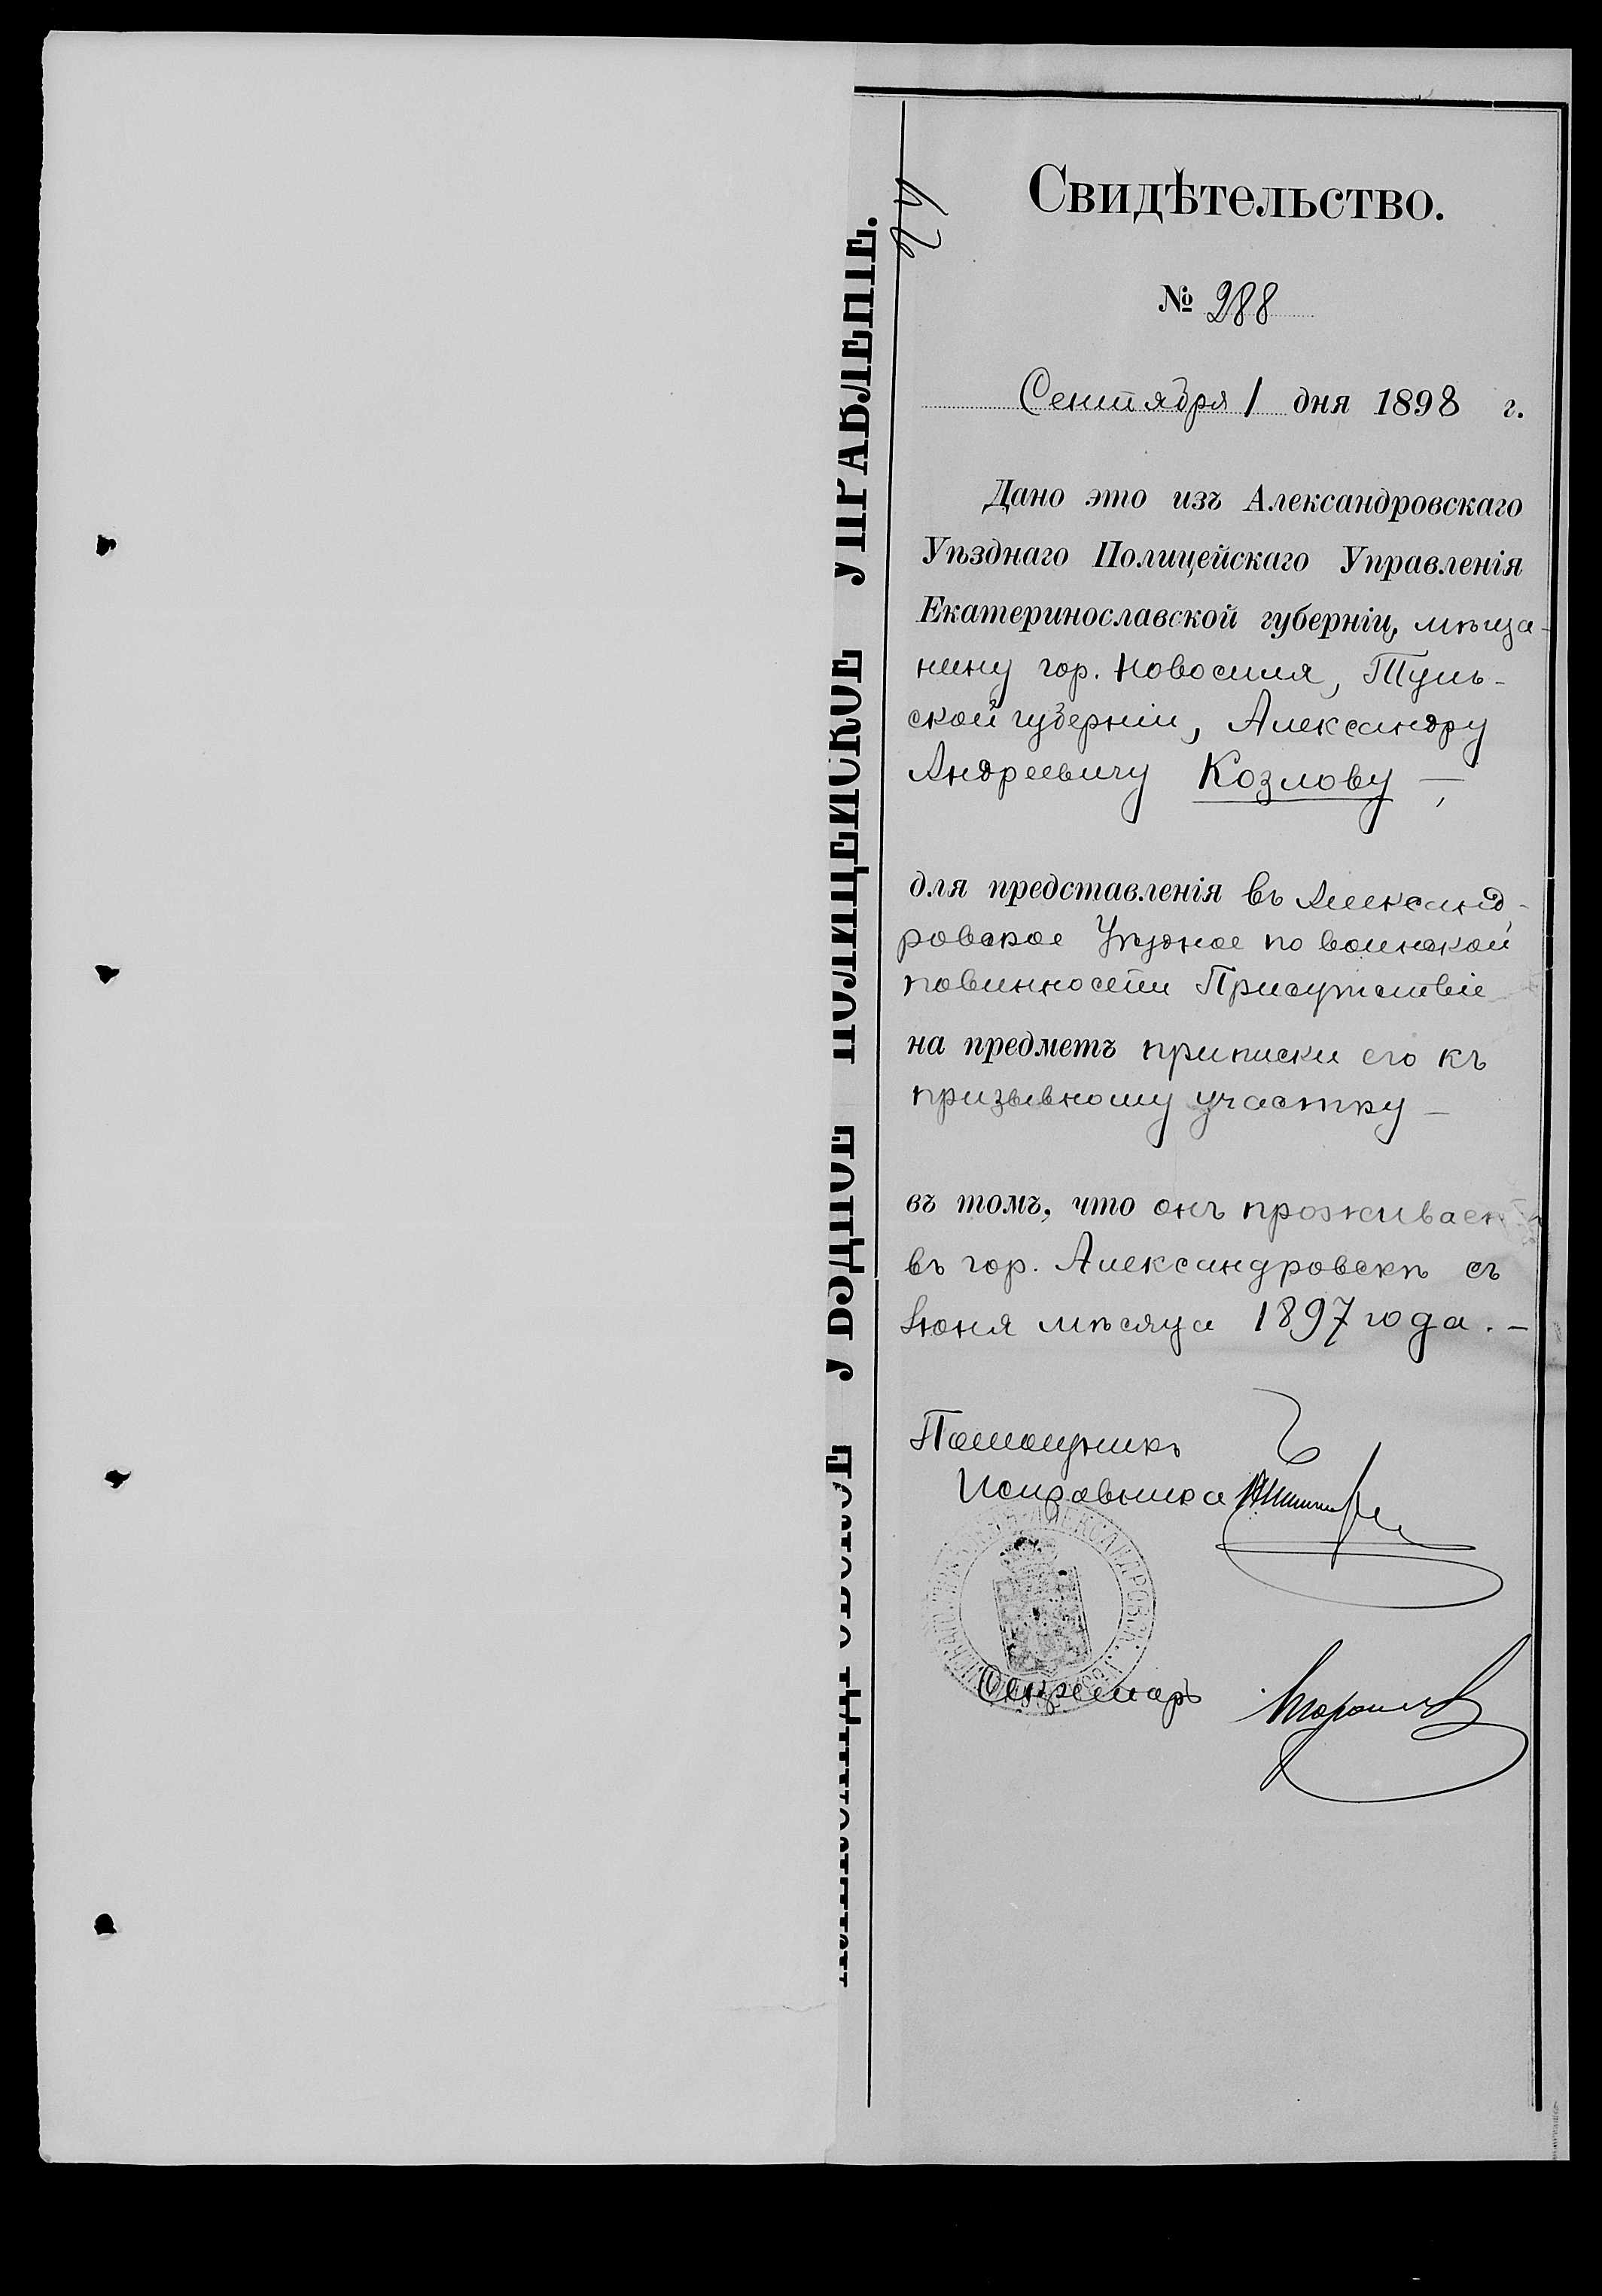 Свидѣтельство.
№ 288
Сентября 1 дня 1898 г.
Дано это изъ Александровскаго
Уѣзднаго Полицейскаго Управленія
Екатеринославской губерніи, мѣща-
нину гор. Новосиля, Туль-
ской губерніи, Александру
Андреевичу Козлову —,
для представленія въ Александ-
ровское Уѣздное по воинской
повинности Присутствіе
на предметъ приписки его къ
призывному участку —
въ томъ, что онъ проживаетъ
въ гор. Александровскѣ съ
Іюня мѣсяца 1897 года. —
Помощникъ
Исправника
Секретарь
УѢЗДНОЕ ПОЛИЦЕЙСКОЕ УПРАВЛЕНІЕ.